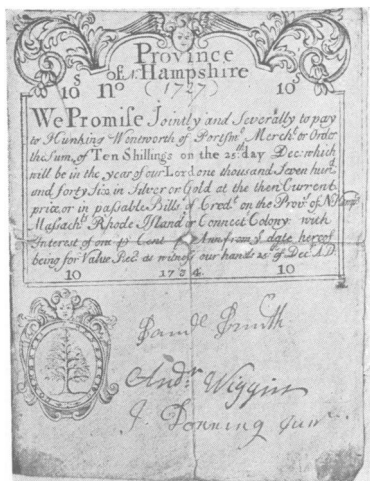 Province
of N. Hampshire
10 S No (1727) 10 S
We Promise Jointly and Severally to pay
to Hunking Wentworth of Portsmo. Mercht. or Order
the Sum of Ten Shillings on the 25th day Decr. which
will be in the year of our Lord one thousand Seven hund
and forty Six in Silver or Gold at the then Current
price or in passable Bills of Credt. on the Prov. of N. Hamps
Massachts. Rhode Island or Connect Colony with
Interest of one pr Cent pr Ann from ye date hereof
being for Value Recd. as witness our hands 25th of Decr. A.D.
10 1734. 10
Saml Smith
Andr. Wiggin
J. Downing junr.